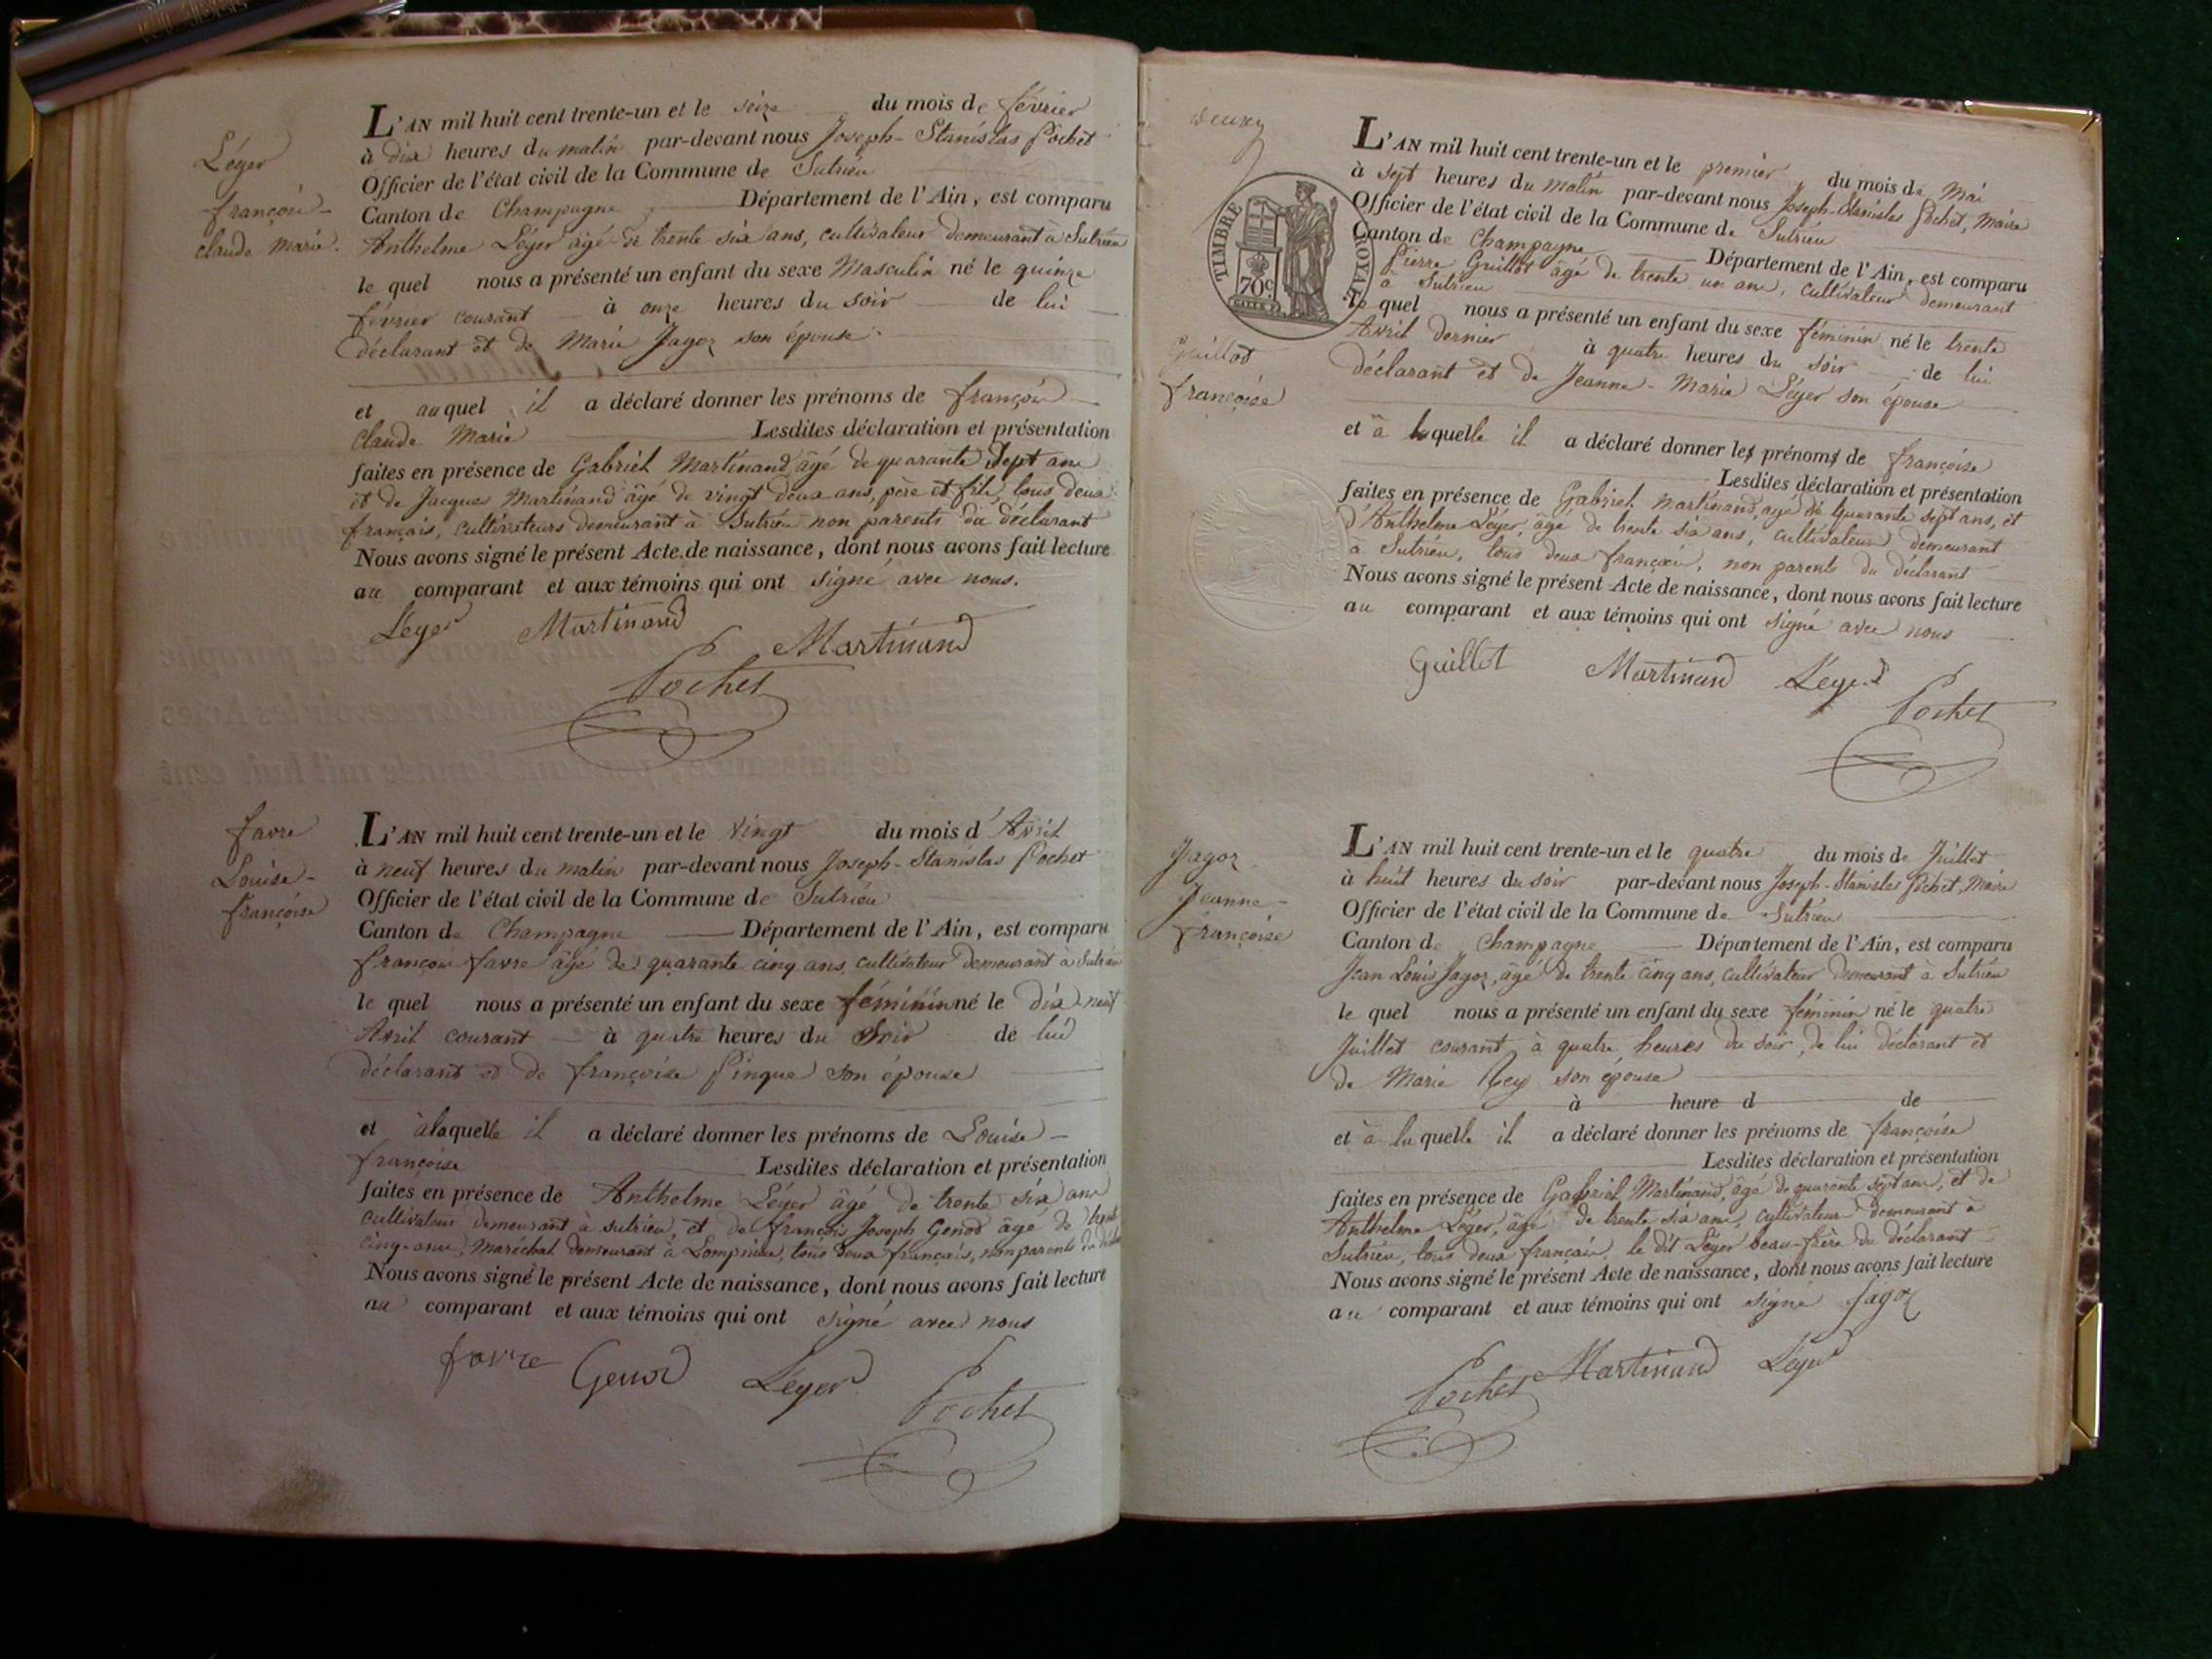 Léger
françois-
claude marie.
L'AN mil huit cent trente-un et le seize du mois de février
à dix heures du matin par-devant nous Joseph-Stanislas Pochet
Officier de l'état civil de la Commune de Sutrieu
Canton de Champagne Département de l'Ain, est comparu
Anthelme Léger âgé de trente six ans, cultivateur demeurant à Sutrieu
le quel nous a présenté un enfant du sexe Masculin né le quinze
février courant à onze heures du soir de lui
déclarant et de Marie Jagoz son épouse.
et auquel il a déclaré donner les prénoms de françois
Claude Marie Lesdites déclaration et présentation
faites en présence de Gabriel Martinand âgé de quarante Sept ans
et de Jacques Martinand âgé de vingt deux ans, père et fils, tous deux
français, cultivateurs demeurant à Sutrieu non parents du déclarant
Nous avons signé le présent Acte de naissance, dont nous avons fait lecture
au comparant et aux témoins qui ont signé avec nous.
Léger Martinand Martinand
Pochet
favre
Louise-
françoise
L'AN mil huit cent trente-un et le vingt du mois d'Avril
à neuf heures du matin par-devant nous Joseph-Stanislas Pochet
Officier de l'état civil de la Commune de Sutrieu
Canton de Champagne Département de l'Ain, est comparu
françois favre âgé de quarante cinq ans, cultivateur demeurant à Sutrieu
le quel nous a présenté un enfant du sexe féminin né le dix-neuf
Avril courant à quatre heures du Soir de lui
déclarant et de françoise Pingue son épouse
et à laquelle il a déclaré donner les prénoms de Louise-
françoise Lesdites déclaration et présentation
faites en présence de Anthelme Léger âgé de trente six ans
cultivateur demeurant à sutrieu, et de françois Joseph Genod âgé de trente
cinq-ans, Maréchal demeurant à Lompnieu, tous deux français, non parents du
Nous avons signé le présent Acte de naissance, dont nous avons fait lecture
au comparant et aux témoins qui ont signé avec nous
favre Genod Léger Pochet
TIMBRE ROYAL
70c
L'AN mil huit cent trente-un et le premier du mois de Mai
à sept heures du matin par-devant nous Joseph-Stanislas Pochet, Maire
Officier de l'état civil de la Commune de Sutrieu
Canton de Champagne Département de l'Ain, est comparu
Pierre Guillot âgé de trente un ans, cultivateur demeurant
à Sutrieu
le quel nous a présenté un enfant du sexe féminin né le trente
Avril dernier à quatre heures du soir de lui
déclarant et de Jeanne-Marie Léger son épouse
Guillot
françoise
et à laquelle il a déclaré donner les prénoms de françoise
Lesdites déclaration et présentation
faites en présence de Gabriel Martinand, âgé de quarante sept ans, et
d'Anthelme Léger, âgé de trente six ans, cultivateurs demeurant
à Sutrieu, tous deux français, non parents du déclarant
Nous avons signé le présent Acte de naissance, dont nous avons fait lecture
au comparant et aux témoins qui ont signé avec nous
Guillot Martinand Léger
Pochet
Jagoz
Jeanne-
françoise
L'AN mil huit cent trente-un et le quatre du mois de Juillet
à huit heures du soir par-devant nous Joseph-Stanislas Pochet, Maire
Officier de l'état civil de la Commune de Sutrieu
Canton de Champagne Département de l'Ain, est comparu
Jean Louis Jagoz, âgé de trente cinq ans, cultivateur demeurant à Sutrieu
le quel nous a présenté un enfant du sexe féminin né le quatre
Juillet courant à quatre heures du soir, de lui déclarant et
de Marie Rey son épouse
à heure d de
et à laquelle il a déclaré donner les prénoms de françoise
Lesdites déclaration et présentation
faites en présence de Gabriel Martinand, âgé de quarente sept ans, et de
Anthelme Léger, âgé de trente six ans, cultivateur demeurant à
Sutrieu, tous deux français, le dit Léger beau-frère du déclarant
Nous avons signé le présent Acte de naissance, dont nous avons fait lecture
au comparant et aux témoins qui ont signé Jagoz
Pochet Martinand Léger